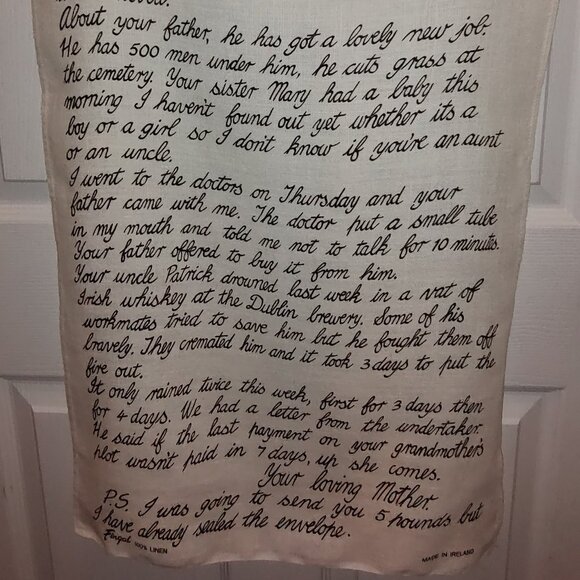 About your father, he has got a lovely new job.
He has 500 men under him, he cuts grass at
the cemetery. Your sister Mary had a baby this
morning I haven't found out yet whether its a
boy or a girl so I don't know if you're an aunt
or an uncle.
I went to the doctors on Thursday and your
father came with me. The doctor put a small tube
in my mouth and told me not to talk for 10 minutes.
Your father offered to buy it from him.
Your uncle Patrick drowned last week in a vat of
Irish whiskey at the Dublin brewery. Some of his
workmates tried to save him but he fought them off
bravely. They cremated him and it took 3 days to put the
fire out.
It only rained twice this week, first for 3 days then
for 4 days. We had a letter from the undertaker.
He said if the last payment on your grandmother's
plot wasn't paid in 7 days, up she comes.
Your loving Mother.
P.S. I was going to send you 5 pounds but
I have already sealed the envelope.
Fingal 100% LINEN
MADE IN IRELAND